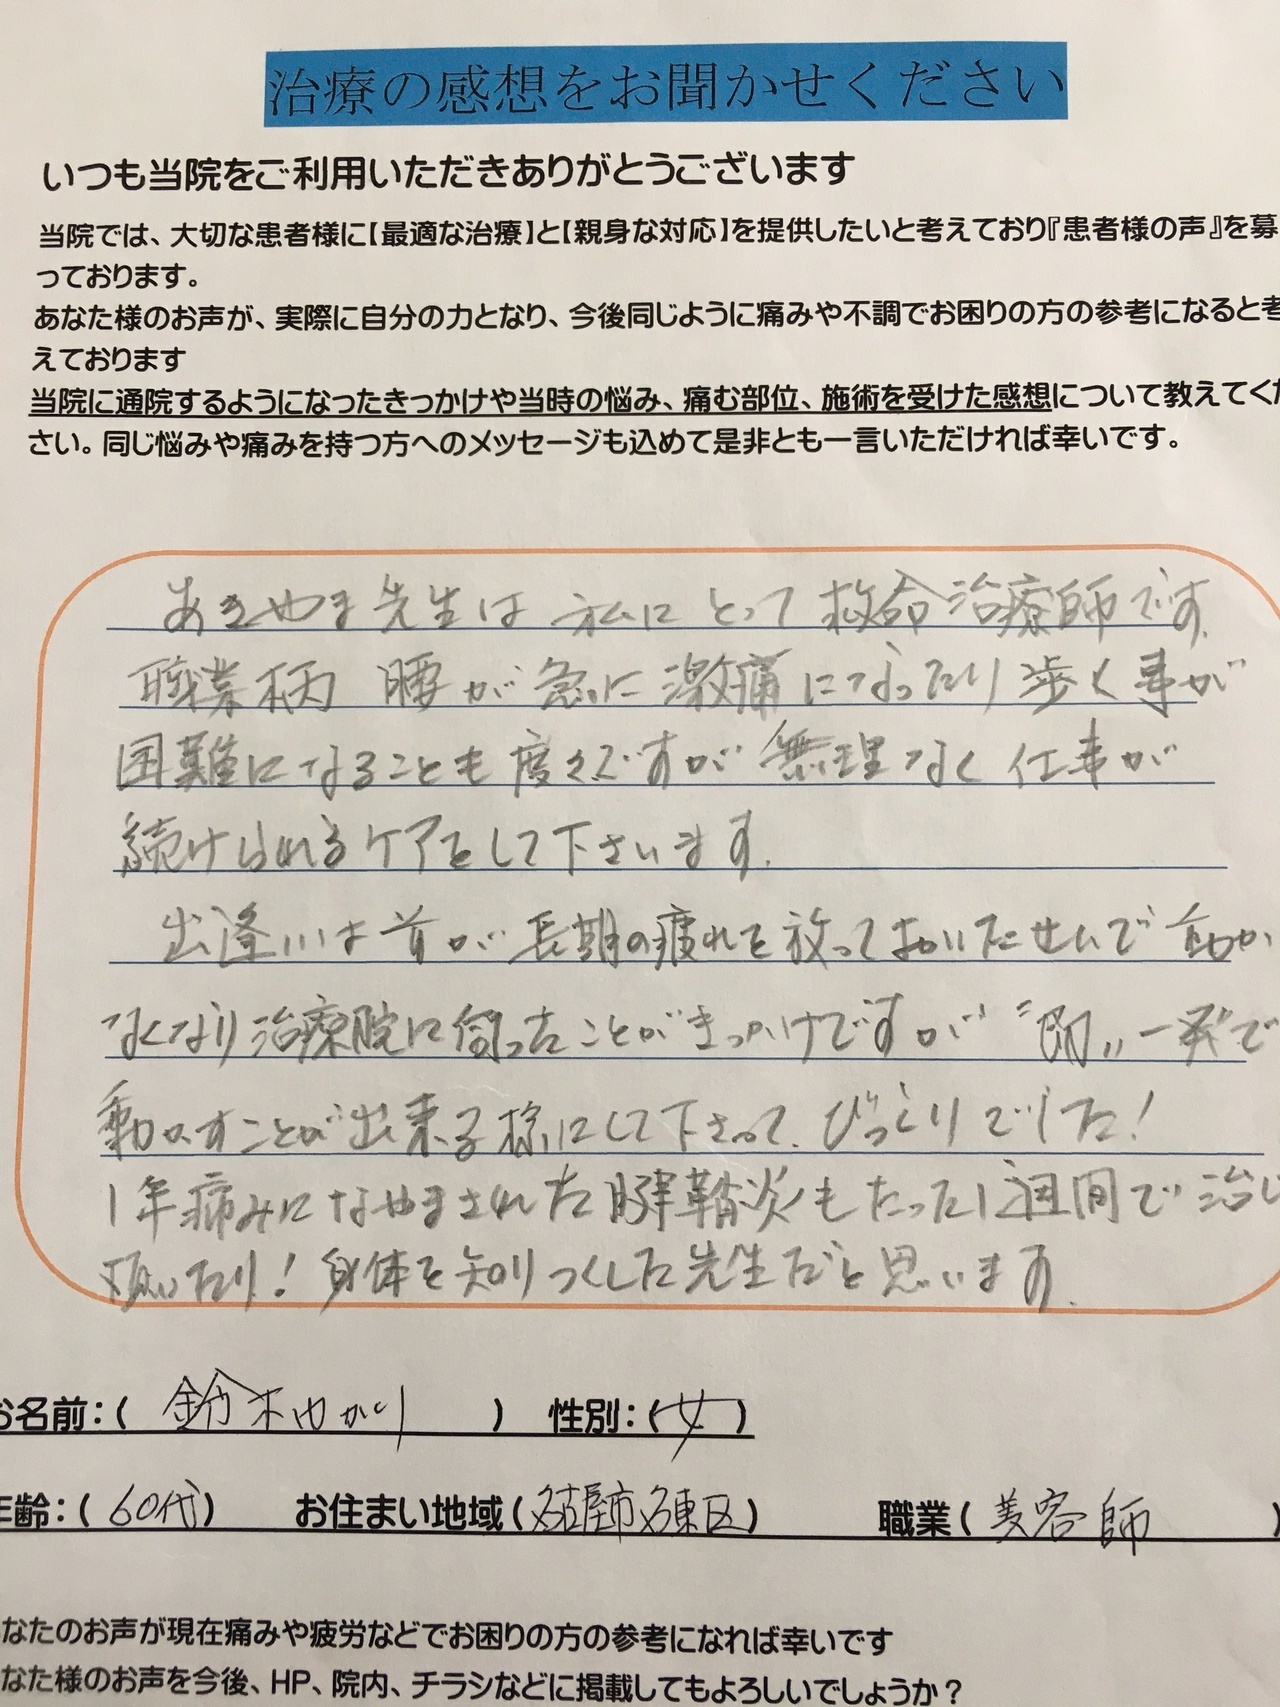 治療の感想をお聞かせください
いつも当院をご利用いただきありがとうございます
当院では、大切な患者様に【最適な治療】と【親身な対応】を提供したいと考えており『患者様の声』を募
っております。
あなた様のお声が、実際に自分の力となり、今後同じように痛みや不調でお困りの方の参考になると考
えております
当院に通院するようになったきっかけや当時の悩み、痛む部位、施術を受けた感想について教えてくだ
さい。同じ悩みや痛みを持つ方へのメッセージも込めて是非とも一言いただければ幸いです。
あきやま先生は 私にとって 救命治療師です。
職業柄 腰が急に激痛になったり歩く事が
困難になることも度々ですが 無理なく仕事が
続けられるケアをして下さいます。
出逢いは首が長期の疲れを放っておいたせいで動か
なくなり治療院に伺ったことがきっかけですが 一発で
動かすことが出来る様にして下さって、びっくりでした!
1年痛みになやまされた腱鞘炎もたった1週間で治し
頂いたり! 身体を知りつくした先生だと思います。
お名前:( 鈴木ゆかり ) 性別:(女)
年齢:(60代) お住まい地域(名古屋市名東区) 職業(美容師 )
なたのお声が現在痛みや疲労などでお困りの方の参考になれば幸いです
なた様のお声を今後、HP、院内、チラシなどに掲載してもよろしいでしょうか?